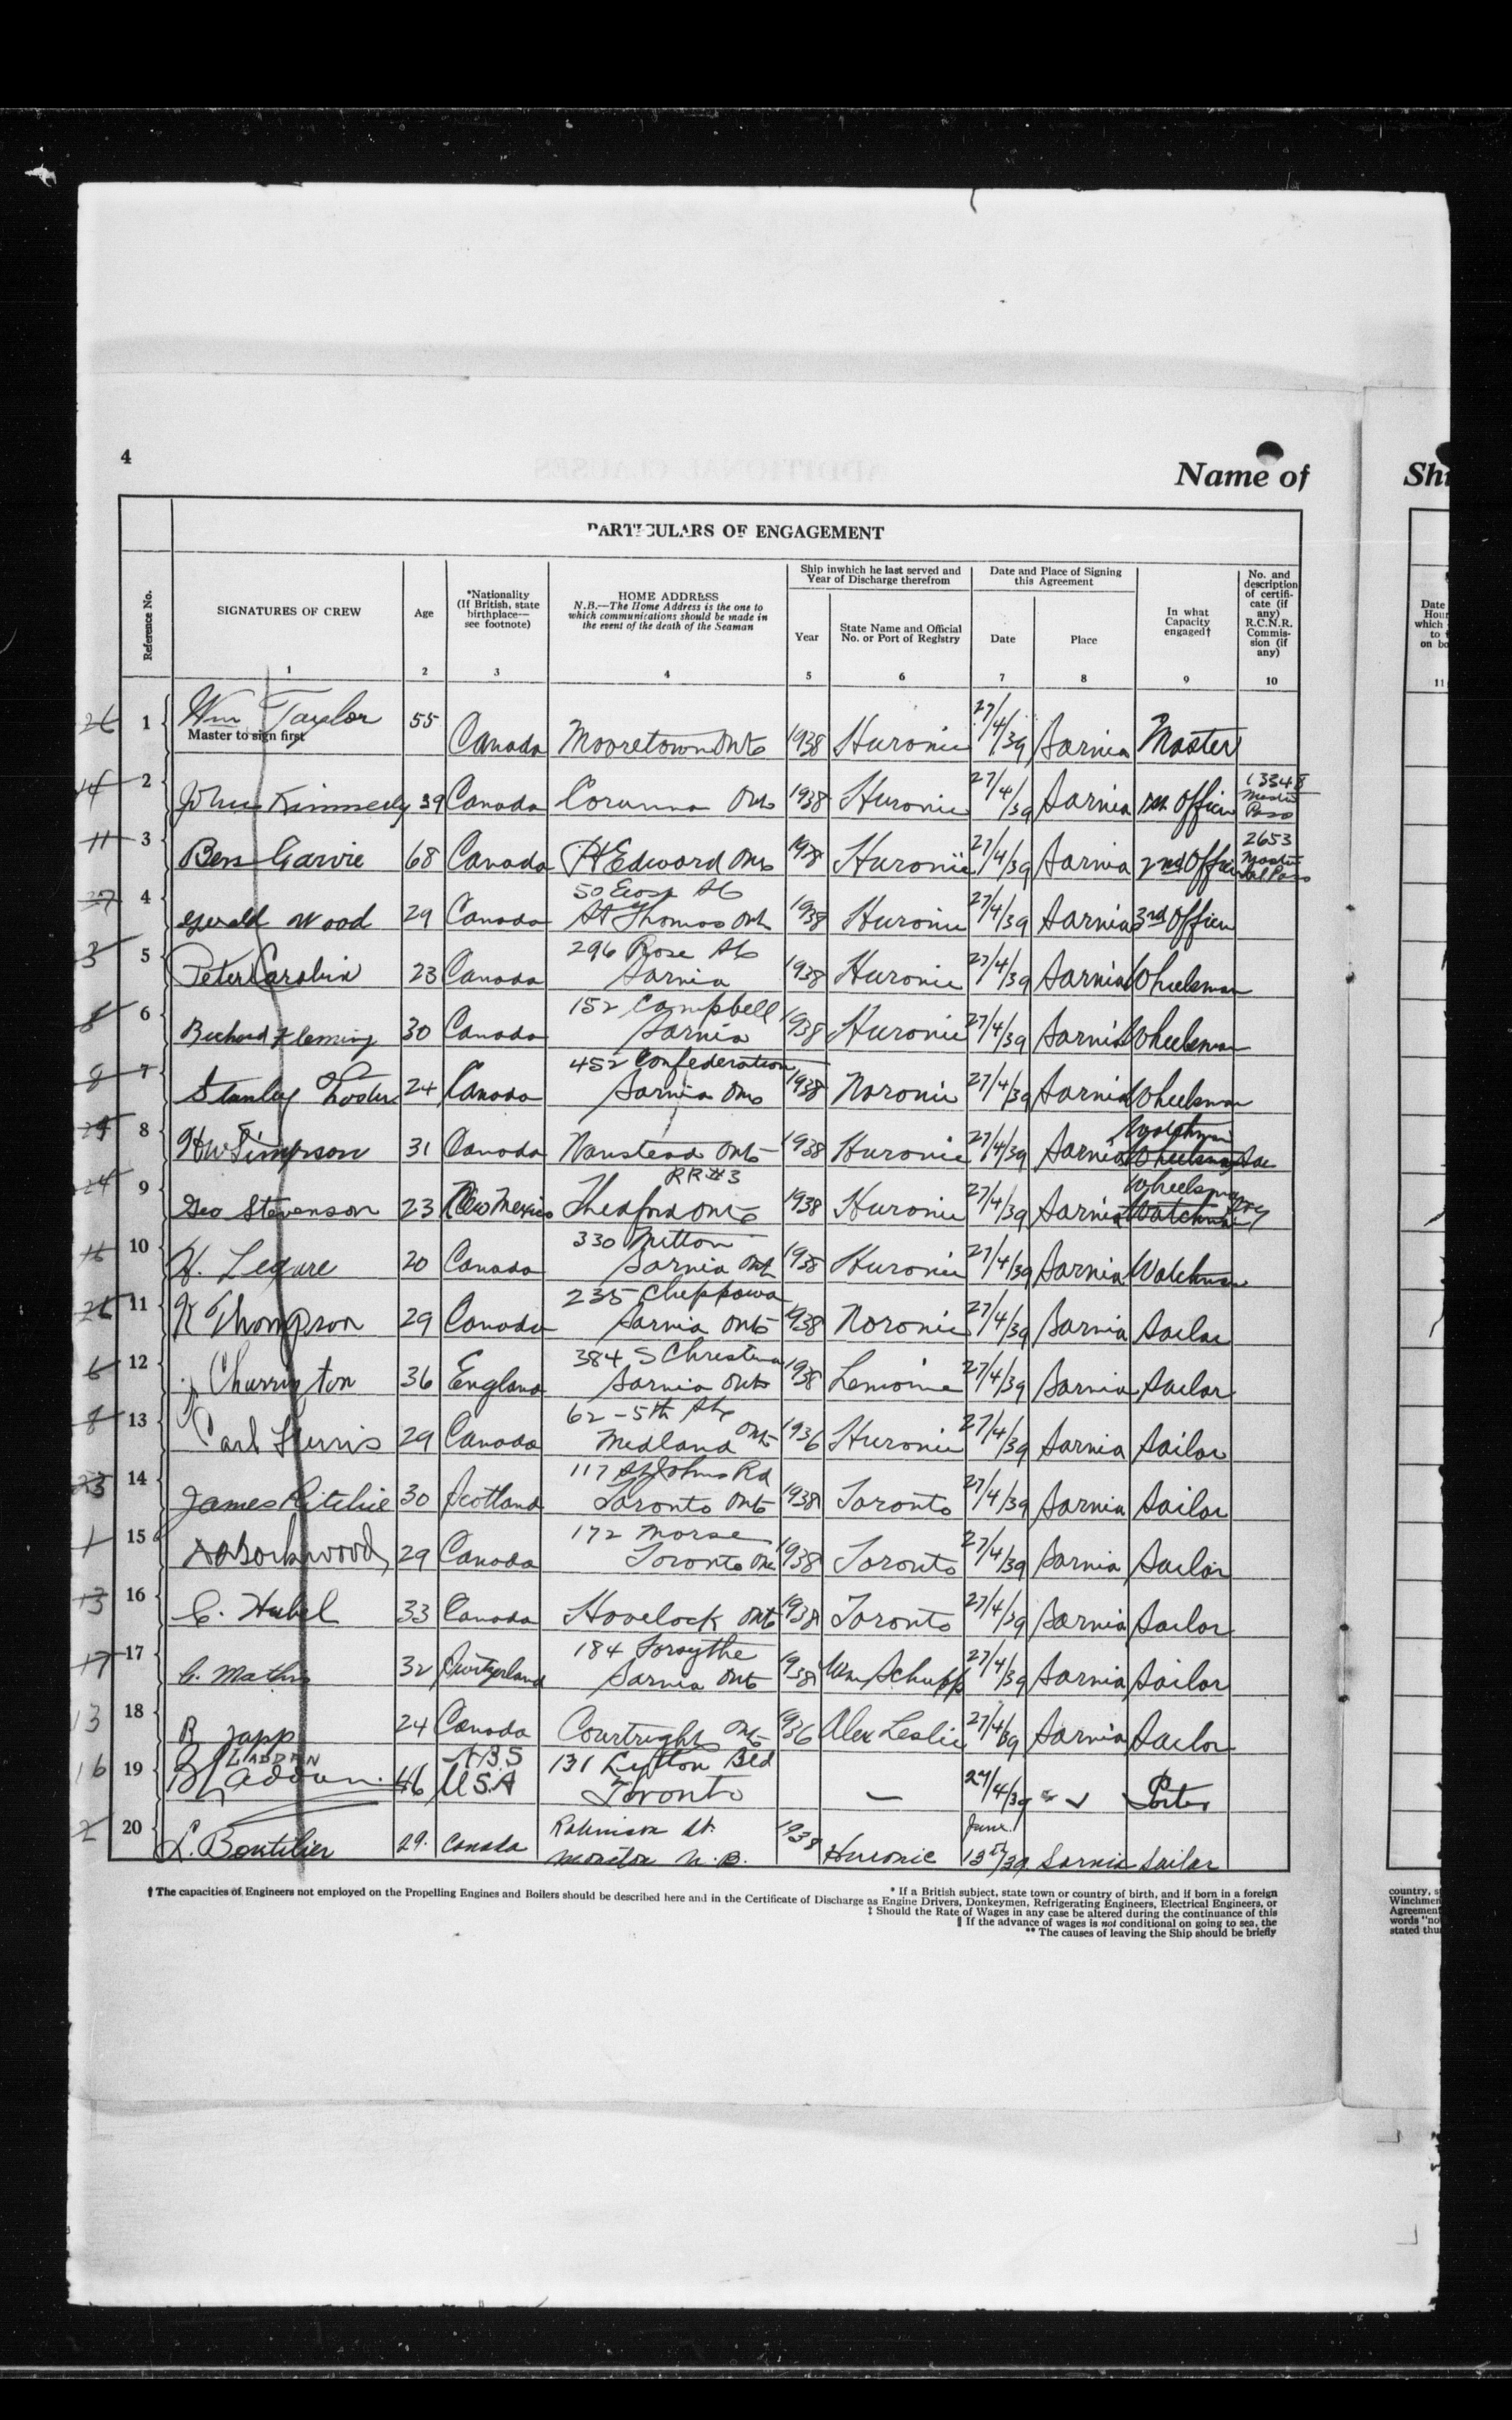 4
Name of
Shi
PARTICULARS OF ENGAGEMENT
Reference No.
SIGNATURES OF CREW
Age
*Nationality
(If British, state
birthplace—
see footnote)
HOME ADDRESS
N.B.—The Home Address is the one to
which communications should be made in
the event of the death of the Seaman
Ship inwhich he last served and
Year of Discharge therefrom
Year
State Name and Official
No. or Port of Registry
Date and Place of Signing
this Agreement
Date
Place
In what
Capacity
engaged†
No. and
description
of certifi-
cate (if
any)
R.C.N.R.
Commis-
sion (if
any)
Date
Hour
which
to
on bo
1 2 3 4 5 6 7 8 9 10 11
26 1 Wm Taylor 55 Canada Mooretown Ont 1938 Huronic 27/4/39 Sarnia Master
Master to sign first
14 2 John Kinnedy 39 Canada Corunna Ont 1938 Huronic 27/4/39 Sarnia 1st Officer 13348
Master
Pass
11 3 Ben Garvie 68 Canada Pt Edward Ont 1938 Huronic 27/4/39 Sarnia 2nd Officer 2653
Master
Pass
50 St
27 4 Gerald Wood 29 Canada St Thomas Ont 1938 Huronic 27/4/39 Sarnia 3rd Officer
296 Rose St
3 5 Peter Carabin 23 Canada Sarnia 1938 Huronic 27/4/39 Sarnia Wheelsman
152 Campbell
8 6 Richard Fleming 30 Canada Sarnia 1938 Huronic 27/4/39 Sarnia Wheelsman
452 Confederation
8 7 Stanley Foster 24 Canada Sarnia Ont 1938 Noronic 27/4/39 Sarnia Wheelsman
Watchman
8 HW Simpson 31 Canada Wanstead Ont 1938 Huronic 27/4/39 Sarnia Wheelsman
RR#3 Wheelsman
24 9 Geo Stevenson 23 New Mexico Thedford Ont 1938 Huronic 27/4/39 Sarnia Watchman
330 Mitton
16 10 H. Legare 20 Canada Sarnia Ont 1938 Huronic 27/4/39 Sarnia Watchman
235 Chippawa
26 11 K Thompson 29 Canada Sarnia Ont 1938 Noronic 27/4/39 Sarnia Sailor
384 S Christina
6 12 J Churrington 36 England Sarnia Ont 1938 Lemoine 27/4/39 Sarnia Sailor
62 - 5th St
8 13 Carl 29 Canada Midland Ont 1936 Huronic 27/4/39 Sarnia Sailor
117 St Johns Rd
23 14 James Ritchie 30 Scotland Toronto Ont 1938 Toronto 27/4/39 Sarnia Sailor
172 Morse
1 15 29 Canada Toronto Ont 1938 Toronto 27/4/39 Sarnia Sailor
13 16 C. Hubel 33 Canada Havelock Ont 1938 Toronto 27/4/39 Sarnia Sailor
184 Forsythe
17 17 C. Mathis 32 Switzerland Sarnia Ont 1938 Wm Schupp 27/4/39 Sarnia Sailor
13 18 R Zapp 24 Canada Courtright Ont 1936 Alex Leslie 27/4/39 Sarnia Sailor
LADDEN N.B.S 131 Lytton Bld
16 19 46 USA Toronto — 27/4/39 Porter
Robinson St. June
2 20 L. Boutilier 29. Canada Moncton N.B. 1938 Huronic 13th/39 Sarnia Sailor
† The capacities of Engineers not employed on the Propelling Engines and Boilers should be described here and in the Certificate of Discharge as Engine Drivers, Donkeymen, Refrigerating Engineers, Electrical Engineers, or
* If a British subject, state town or country of birth, and if born in a foreign
‡ Should the Rate of Wages in any case be altered during the continuance of this
‖ If the advance of wages is not conditional on going to sea, the
** The causes of leaving the Ship should be briefly
country, s
Winchmen
Agreement
words "no
stated thu